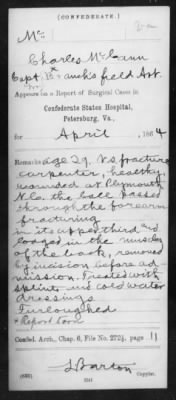 (CONFEDERATE.)
Mc Va
Charles McCann
Capt. Branch's field Art.
Appears on a Report of Surgical Cases in
Confederate States Hospital,
Petersburg, Va.,
for April, 1864
Remarks age 29. V.S. fracture
carpenter, healthy,
wounded at Plymouth
N.C. the ball passed
through the forearm
fracturing
in its upper third and
lodged in the muscles
of the back, removed
by incision before ad
mission. Treated with
splint and cold water
dressings
Furloughed
* Report torn
Confed. Arch., Chap. 6, File No. 273, page 11
L Barton
Copyist.